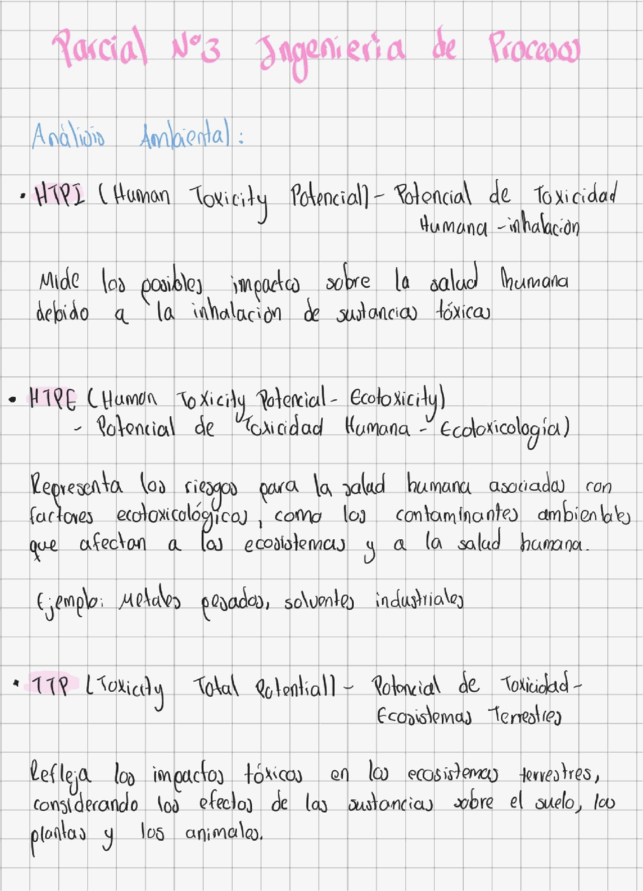 Parcial N°3 Ingenieria de Procesos
Análisis Ambiental:
• HTPI (Human Toxicity Potencial) - Potencial de Toxicidad
Humana - inhalación
Mide los posibles impactos sobre la salud humana
debido a la inhalación de sustancias tóxicas
• HTPE (Human Toxicity Potencial - Ecotoxicity)
- Potencial de Toxicidad Humana - Ecotoxicología)
Representa los riesgos para la salud humana asociados con
factores ecotoxicológicos, como los contaminantes ambientales
que afectan a los ecosistemas y a la salud humana.
Ejemplo: Metales pesados, solventes industriales
• TTP (Toxicity Total Potential) - Potencial de Toxicidad -
Ecosistemas Terrestres
Refleja los impactos tóxicos en los ecosistemas terrestres,
considerando los efectos de las sustancias sobre el suelo, las
plantas y los animales.